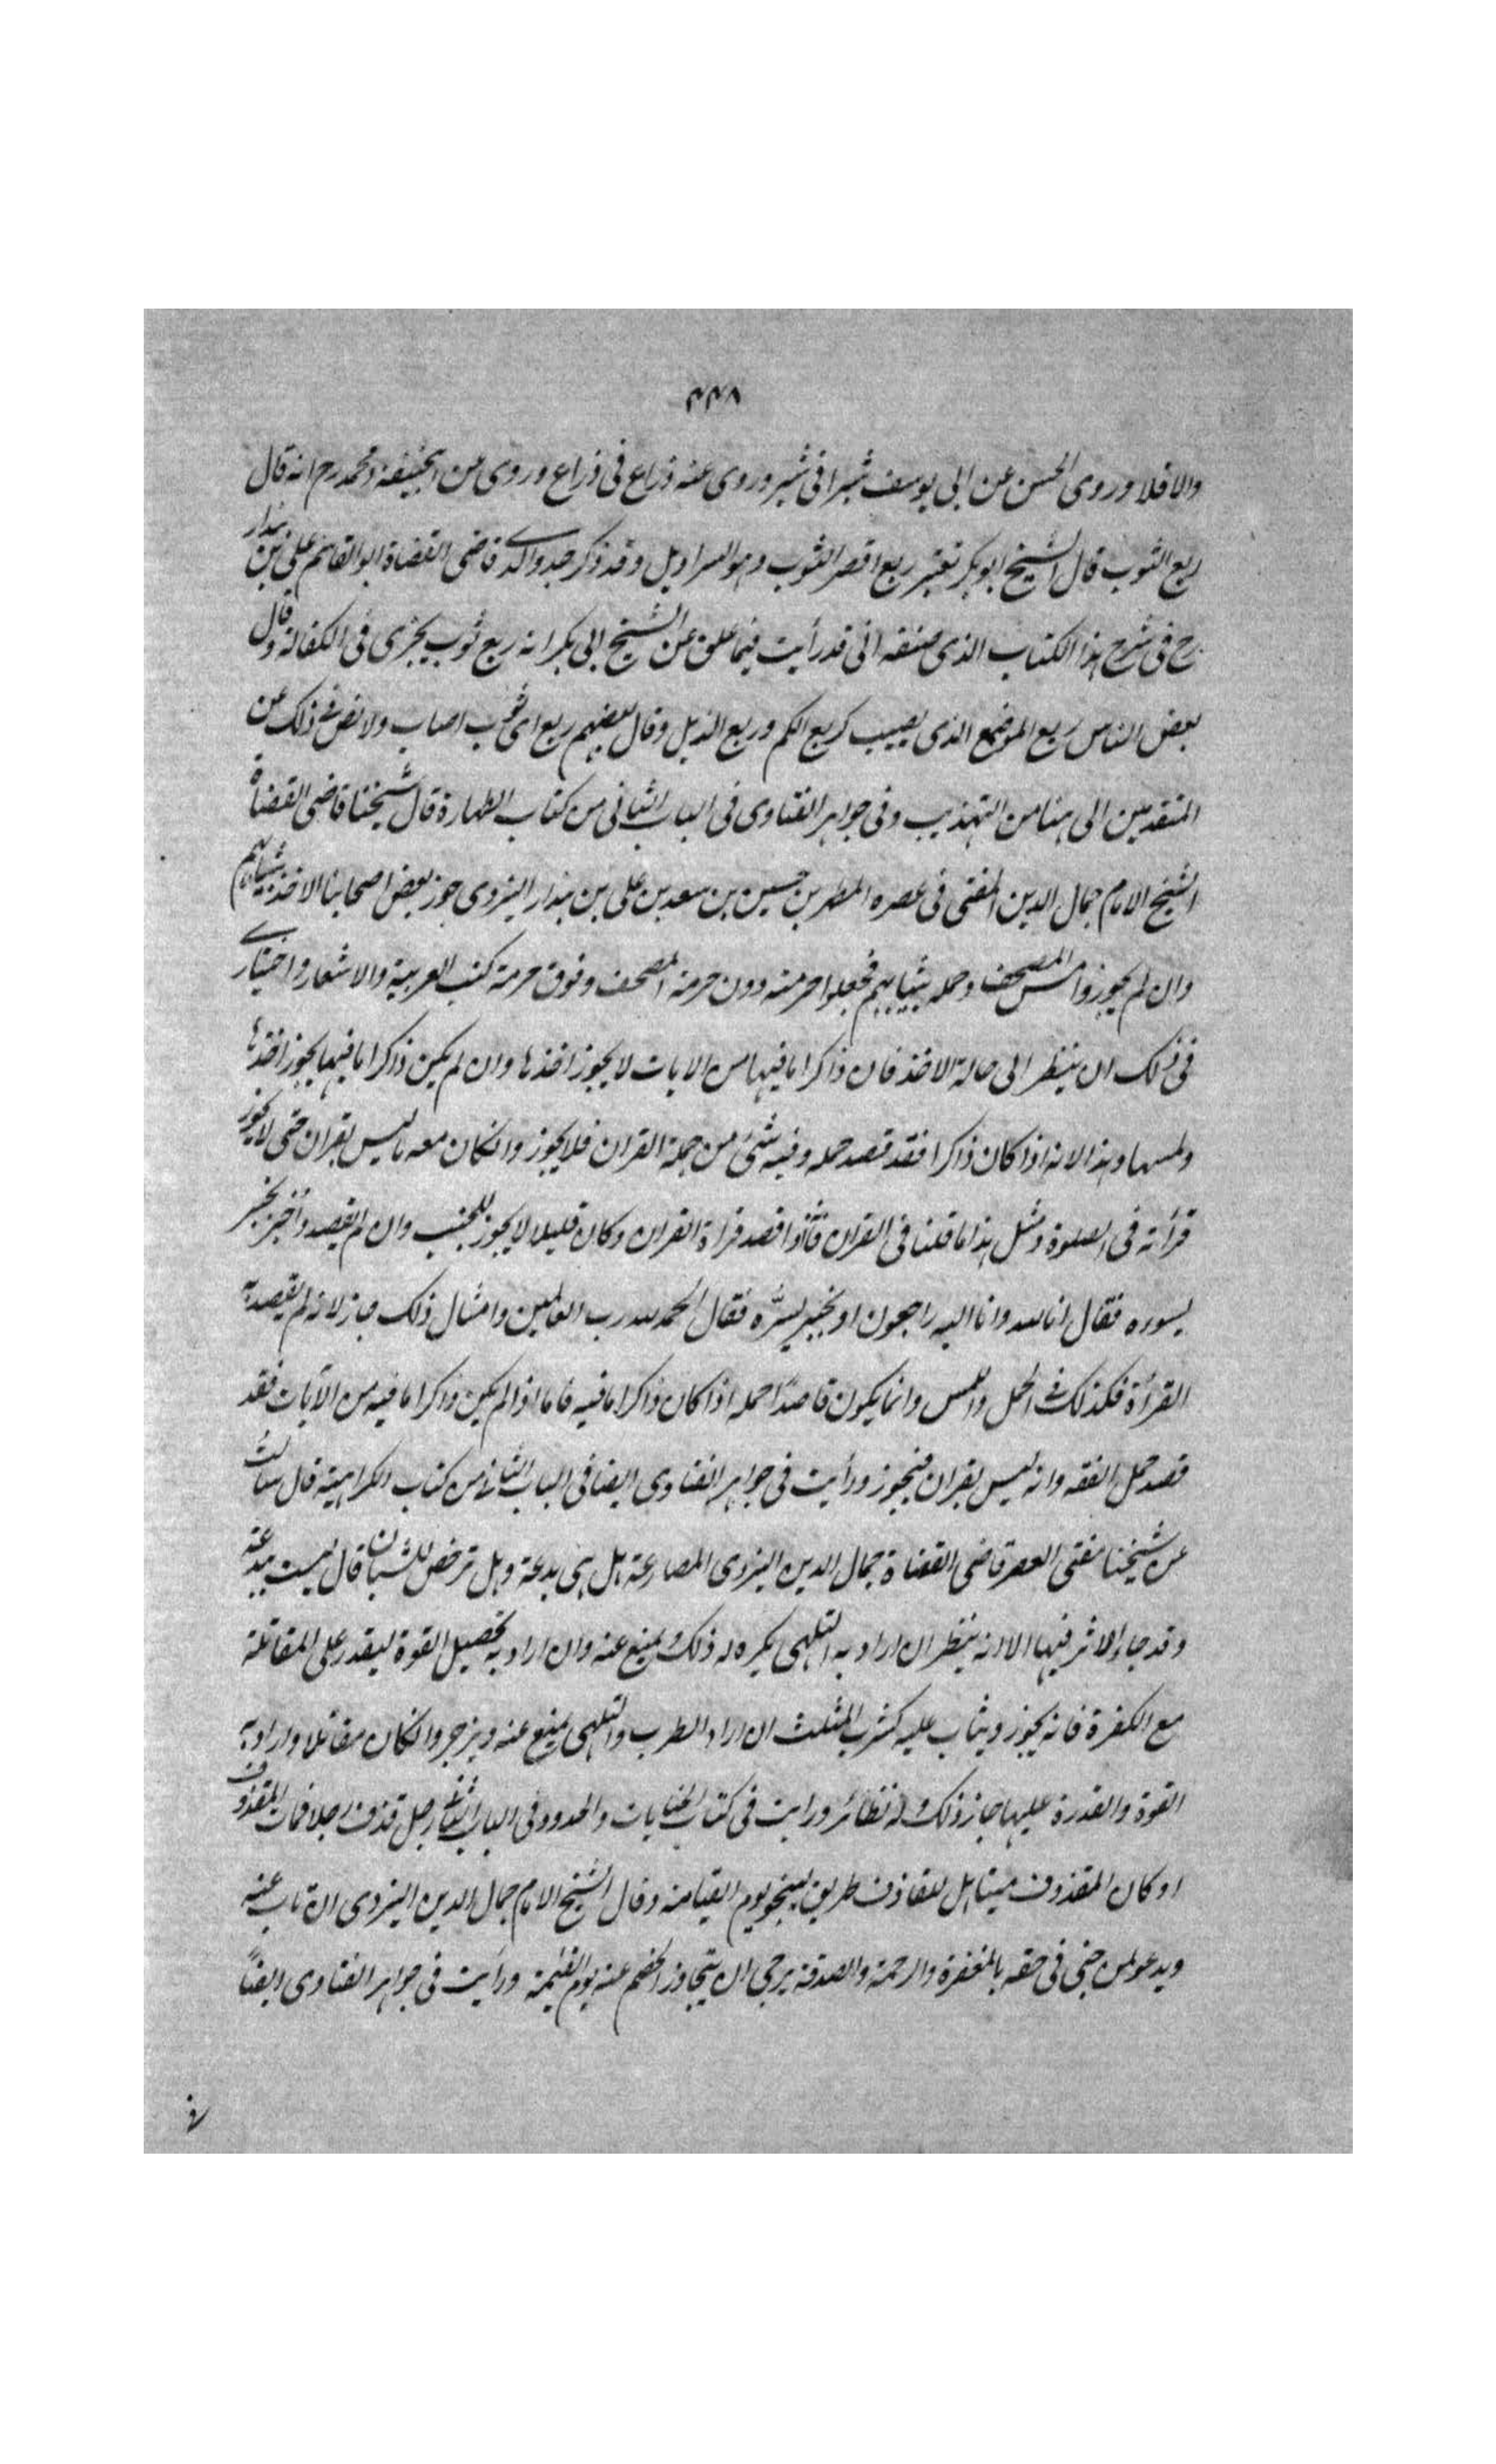 ٤٤٨
والا فلا وروى الحسن عن ابى يوسف شبرا فى شبر وروى عنه ذراع فى ذراع وروى عن ابيحنيفة ومحمد رح انه قال
ربع الثوب قال الشيخ ابو بكر نعتبر ربع اقصر الثوب وهو السراويل وقد ذكر جد والدے قاضى القضاة ابو القاسم على بن بندار
رح فى شرح هذا الكتاب الذى صنفه انى قد رأيت فيما علق عن الشيخ ابى بكر انه ربع ثوب يجزى فى الكفالة وقال
بعض الناس ربع الموضع الذى يصيب كربع الكم وربع الذيل وقال بعضهم ربع اى ثوب اصاب ولا نص فے ذلك عن
المتقدمين الى هنا من التهذيب وفى جواهر الفتاوى فى الباب الثانى من كتاب الطهارة قال شيخنا قاضى القضاة
الشيخ الامام جمال الدين المفتى فى عصره المطهر بن حسين بن سعد بن على بن بندار اليزدى جوز بعض اصحابنا الاخذ بثيابهم
وان لم يجوزوا مس المصحف وحمله بثيابهم فجعلوا حرمته دون حرمة المصحف وفوق حرمة كتب العربية والاشعار واختيارے
فى ذلك ان ينظر الى حالة الاخذ فان ذاكرا ما فيها من الايات لا يجوز اخذها وان لم يكن ذاكرا ما فيها يجوز اخذها
ولمسها وهذا لانه اذا كان ذاكرا فقد قصد حمله وفيه شئ من جملة القران فلا يجوز وانكان معه ما ليس بقران حتى لا يجوز
قرأته فى الصلوة ومثل هذا ما قلنا فى القران فانه اذا قصد قراءة القران وكان قليلا لا يجوز للجنب وان لم يقصد واخبر بخبر
يسوءه فقال انا لله وانا اليه راجعون او بخبر يسرّه فقال الحمد لله رب العلمين وامثال ذلك جاز لانه لم يقصد به
القرأة فكذلك فے الحمل والمس وانما يكون قاصدًا حمله اذا كان ذاكرا ما فيه فاما اذا لم يكن ذاكرا ما فيه من الآيات فقد
قصد حمل الفقه وانه ليس بقران فيجوز ورأيت فى جواهر الفتاوى ايضا فى الباب الثانے من كتاب الكراهية قال سألت
عن شيخنا مفتى العصر قاضى القضاة جمال الدين اليزدى المصارعة هل هى بدعة وهل ترخص للشبان قال ليست ببدعة
وقد جاء الاثر فيها الا انه ينظر ان اراد به التلهى يكره له ذلك ويمنع عنه وان اراد به تحصيل القوة ليقدر على المقاتلة
مع الكفرة فانه يجوز ويثاب عليه كشرب المثلث ان اراد الطرب والتلهى يمنع عنه ويزجر وانكان مقاتلا واراد به
القوة والقدرة عليها جاز ذلك وله نظائر ورايت فى كتاب الجنايات والحدود فى الباب الثانے رجل قذف رجلا فمات المقذوف
او كان المقذوف ميتا هل للقاذف طريق لينجو يوم القيامة وقال الشيخ الامام جمال الدين اليزدى ان تاب عنه
ويدعو لمن جنى فى حقه بالمغفرة والرحمة والصدقة يرجى ان يتجاوز الخصم عنه يوم القيمة ورأيت فى جواهر الفتاوى ايضًا
فے